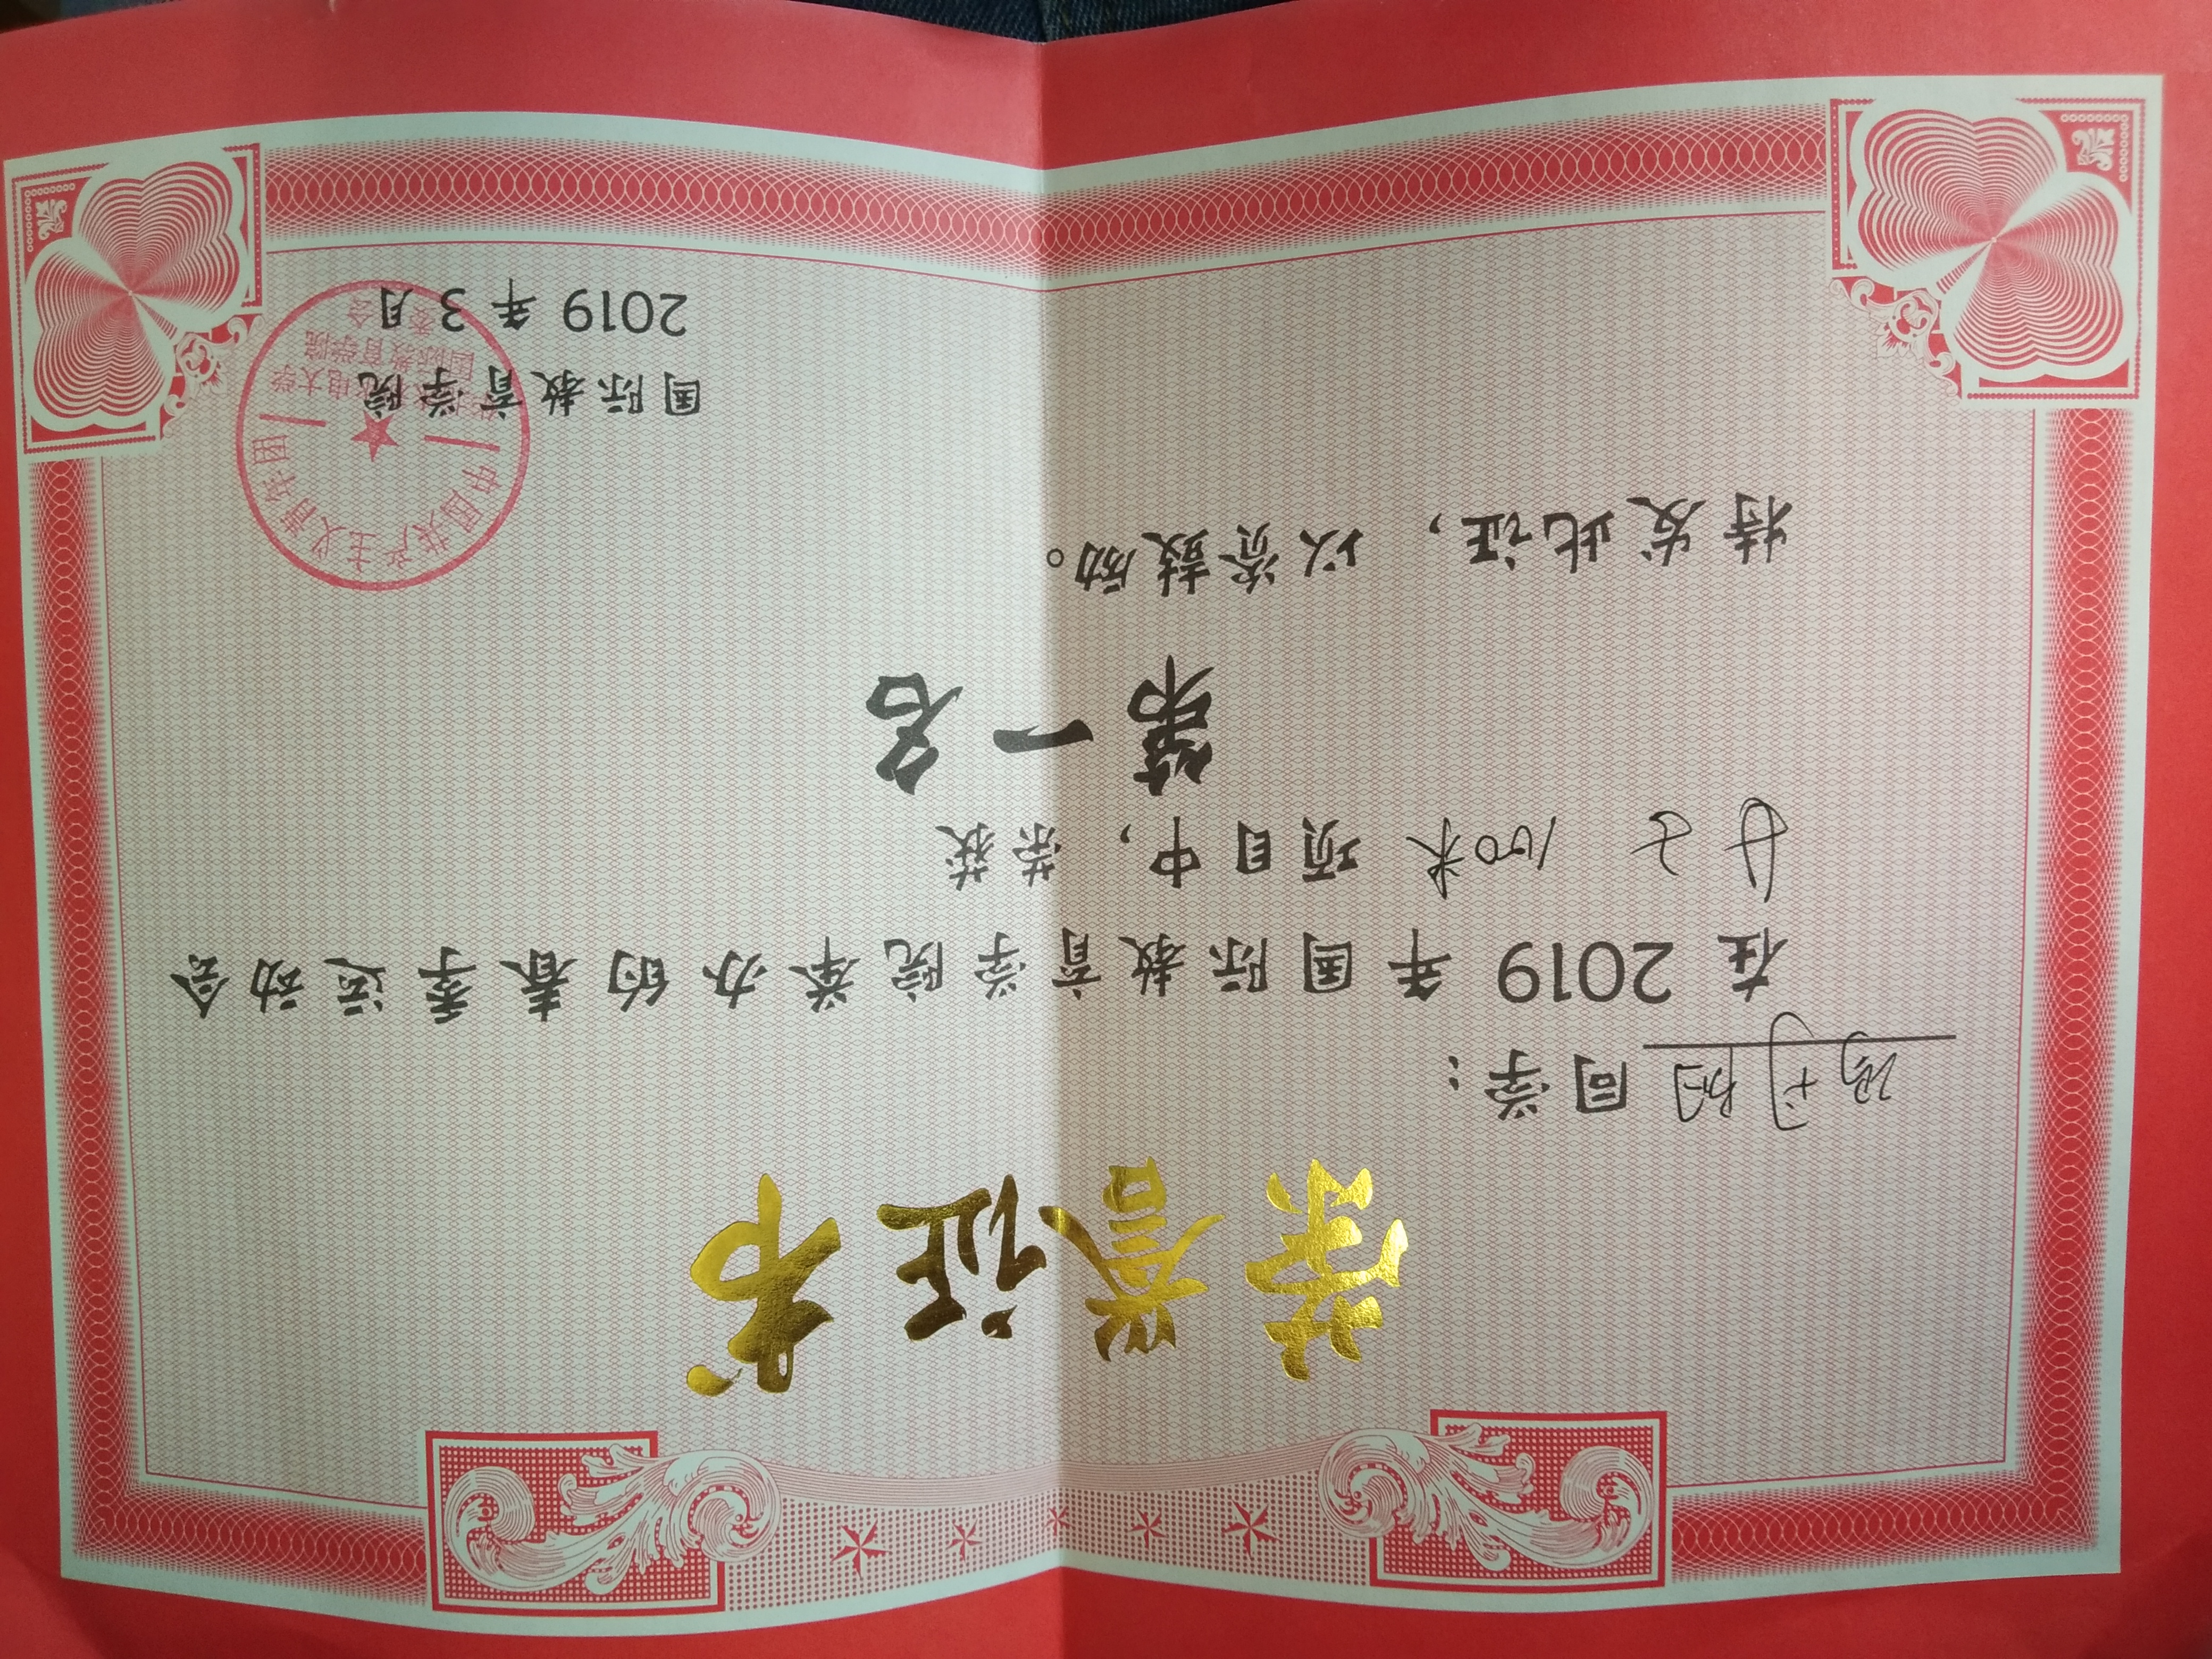 荣誉证书
同学：
在 2019 年国际教育学院举办的春季运动会
女子 100米 项目中，荣获
第一名
特发此证，以资鼓励。
国际教育学院
2019 年 3 月
中国共产主义青年团
电大学
国际教育学院
委
会